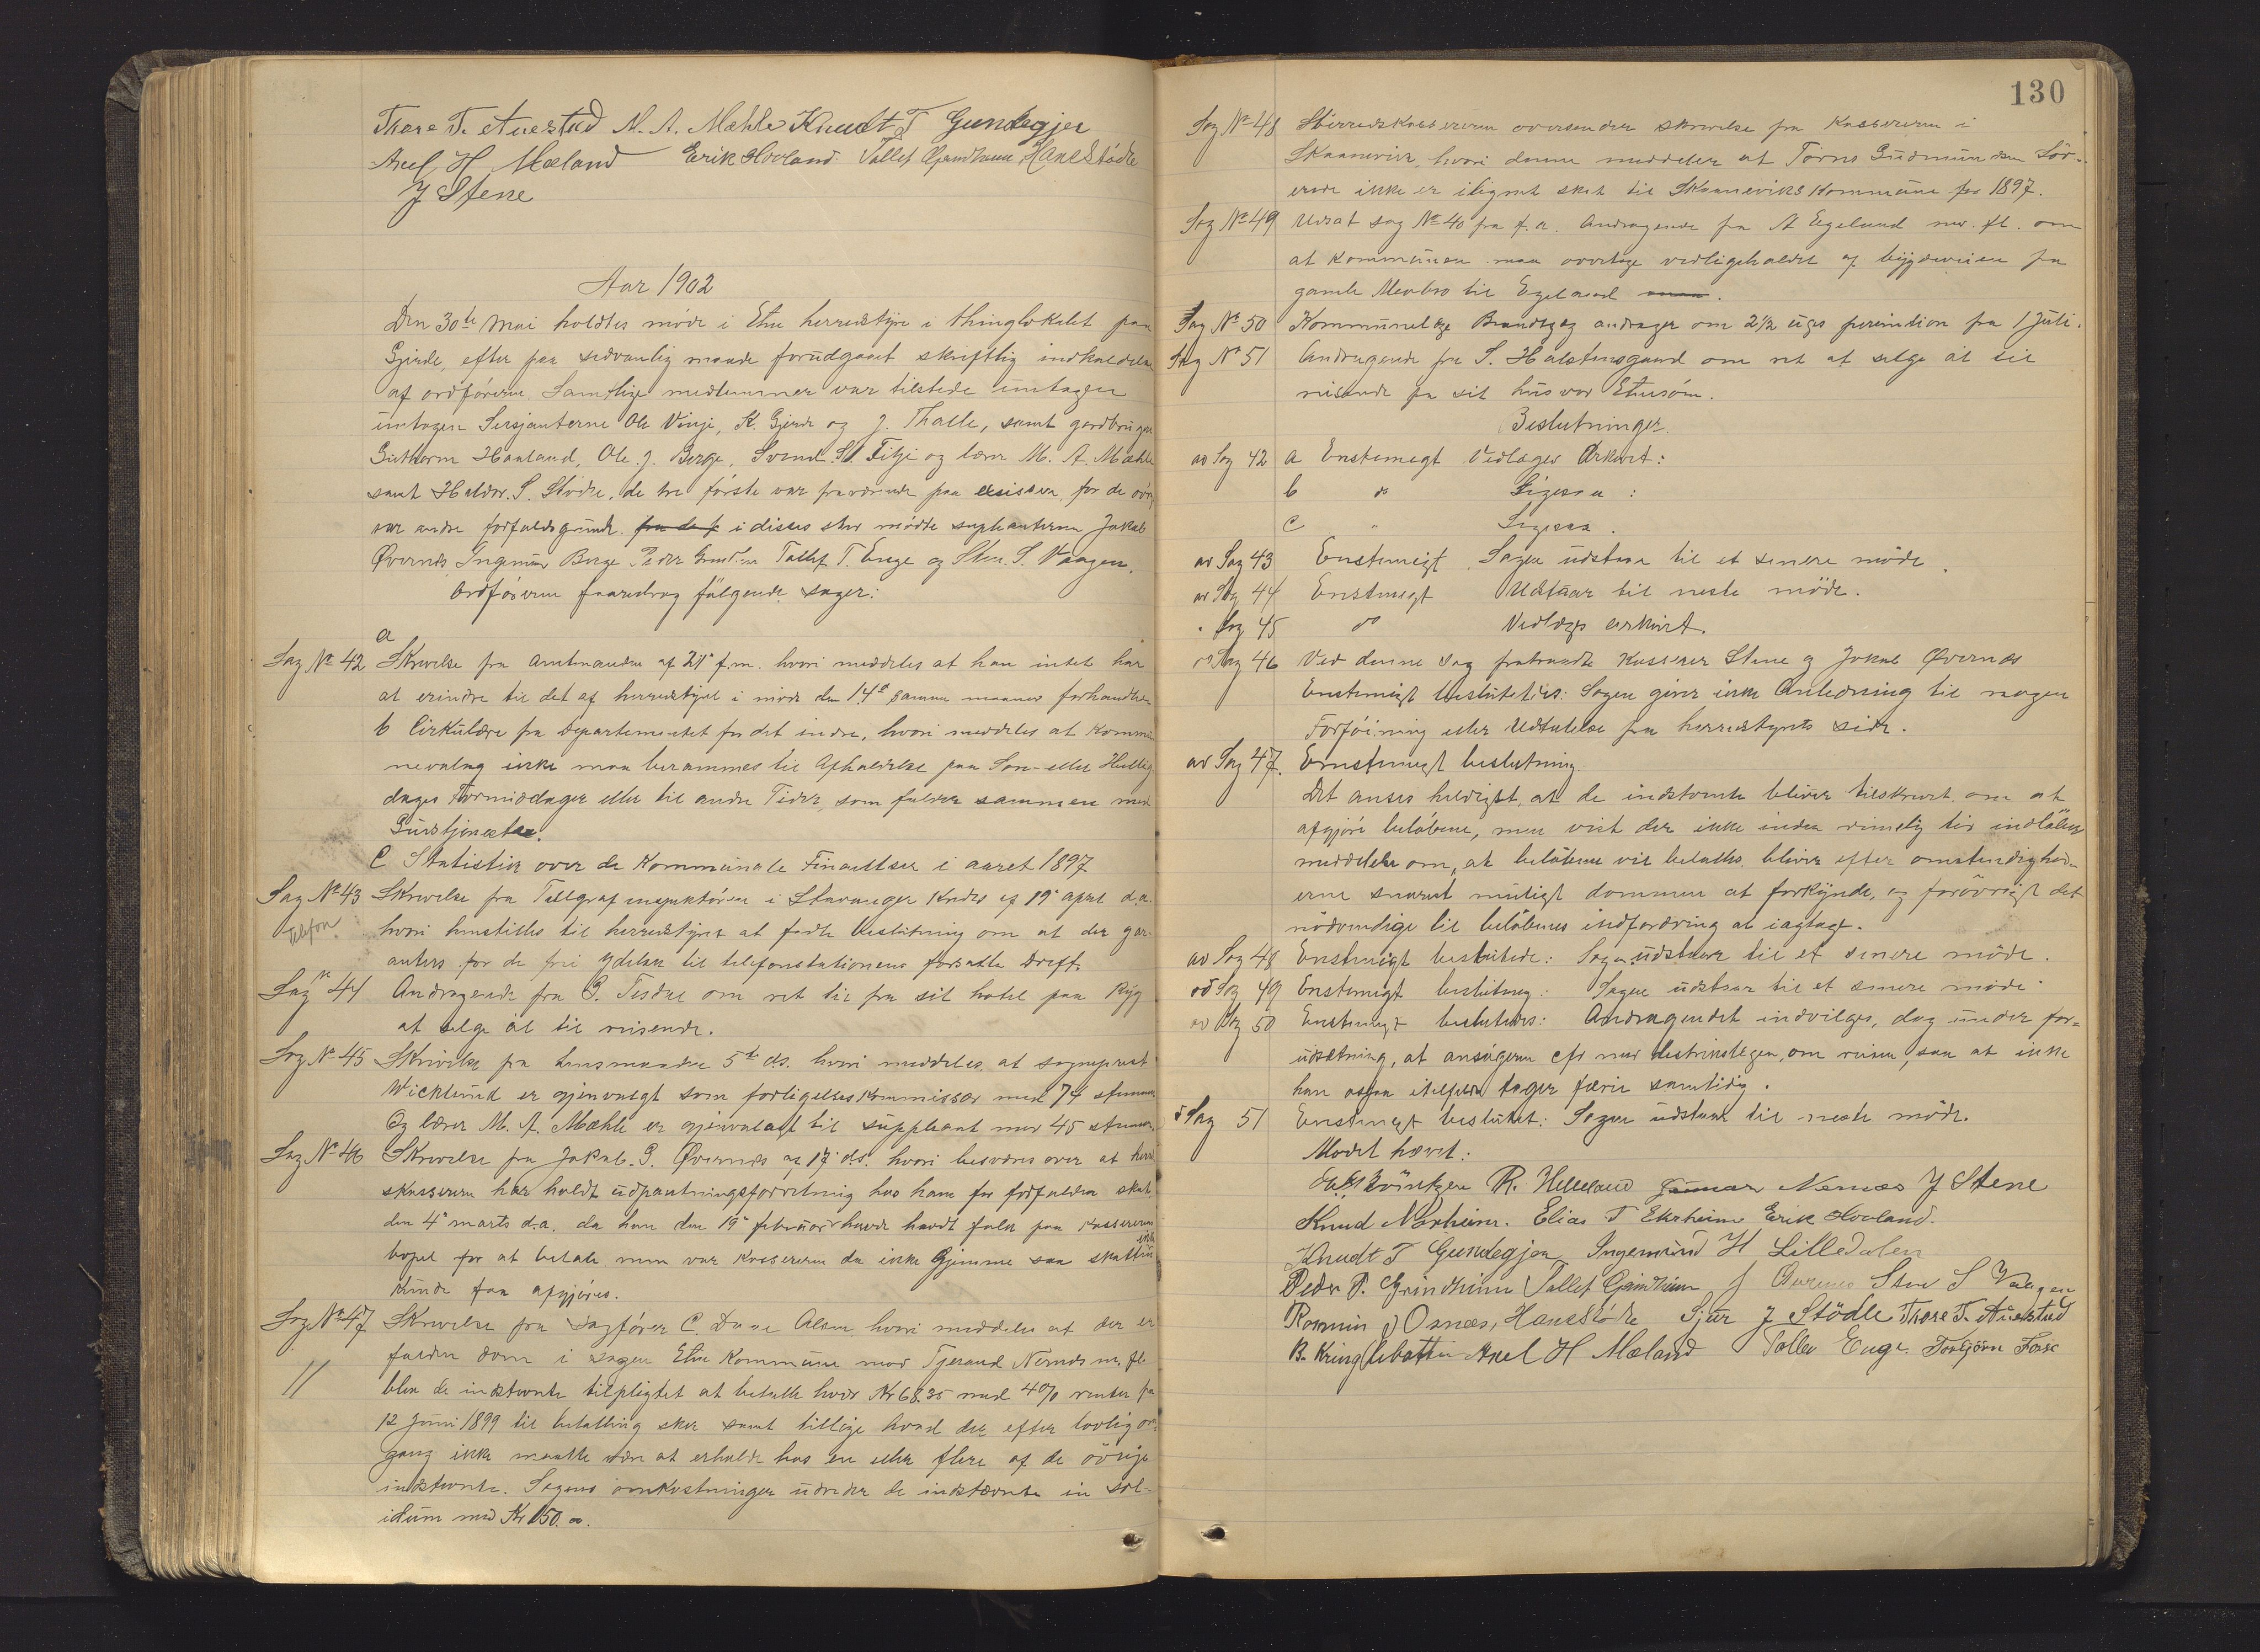 Thore T. Auestad M. A. Mæhle Knudt T Gundegjer
Axel H Mæland Erik Hovland Tallef Grindheim Hans Stödle
J Stene
Aar 1902
Den 30te Mai holdtes möde i Etne herredstyre i thinglokalet paa
Gjerde, efter paa sedvanlig maade forudgaaet skriftlig indkaldelse
af ordföreren. Samtlige medlemmer var tilstede undtagen
undtagen Sersjanterne Ole Vinje, K. Gjerde og J. Thalle, samt gardbruger
Guthorm Haaland, Ole J. Berge, Svend S. Fitje og lærer M. A. Mæhle
samt Haldor S. Stödle, de tre förste var fraværende paa exsissen, for de övrige
var andre forfaldsgrunde. i disses sted mödte supleanterne Jakob
Øvernæs Ingemund Berge Peder Grindheim Tallef T. Enge og Sten S. Vaagen.
Ordföreren foredrog fölgende sager:
a
Sag No 42 Skrivelse fra amtmanden af 21' f.m. hvori meddeles at han intet har
at erindre til det af herredstyret i möde den 14de samme maaned forhandlede
b Cirkulære fra departementet for det indre, hvori meddeles at kommu
nevalg ikke maa berammes til Afholdelse paa Søn- eller Hellig
dages Formiddager eller til andre Tider, som falder sammen med
Gudstjeneste.
C Statistik over de Kommunale Finantser i aaret 1897
Sag No 43 Skrivelse fra Telegrafinspektören i Stavanger Kreds af 19' april d.a.
Telefon hvori henstilles til herredstyret at fatte beslutning om at der gar-
anteres for de frie ydelser til telefonstationens forsatte drift.
Sag n 44 Andragende fra G. Tesdal om ret til fra sit hotel paa Ryg
at selge öl til reisende.
Sag No 45 Skrivelse fra lensmanden 5te d.s. hvori meddeles at sogneprest
Wicklund er gjenvalgt som forligelseskommissær med 74 stemmer
Og lærer M. A. Mæhle er gjenvalgt til suppleant med 45 stemmer.
Sag No 46 Skrivelse fra Jakob G. Øvernæs af 17' d.s. hvori besværes over at herred
skassereren har holdt udpantningsforretning hos ham for forfalden skat
den 4' marts d.a. da han den 19' februar havde havdt folk paa kassererens
bopel for at betale men var kassereren da ikke hjemme saa skatten ikke
kunde faa afgjöres.
Sag No 47 Skrivelse fra sagförer C. Dave Olsen hvori meddeles at der er
falden dom i sagen Etne Kommune mod Tjerand Nernæs m. fl.
// blev de indstevnte tilpligtet at betale hver Kr 68.35 med 4% renter fra
12 Juni 1899 til betalling sker samt tillige hvad der efter lovlig om-
gang ikke maatte være at erholde hos en eller flere af de övrige
indstevnte. Sagens omkostninger udreder de indstævnte in sol-
idum med Kr 150.oo.
130
Sag No 48 Herredskassereren oversender skrivelse fra kassereren i
Skaanevik hvori denne meddeler at Törris Gudmundsen
ikke er ilignet skat til Skaaneviks Kommune for 1897.
Sag No 49 Udsat sag No 40 fra f.a. Andragende fra A Egeland med fl. om
at kommunen maa overtage vedligeholdet af bygdeveien fra
gamle Meabro til Egeland.
Sag No 50 Kommunelæge Brandtzæg andrager om 2 1/2 uges permition fra 1 Juli.
Sag No 51 Andragende fra S. Halstensgaard om ret at selge öl til
reisende fra sit hus ved Etnesöen.
Beslutninger.
ad Sag 42 a Enstemigt Vedlægges Arkivet:
b do Ligesaa:
C " Ligesaa.
ad Sag 43 Enstemigt Sagen udstaar til et senere möde.
ad Sag 44 Enstemigt Udstaar til neste möde.
" Sag 45 do Vedlægges arkivet.
ad Sag 46 Ved denne sag fratraadte kasserer Stene og Jakob Øvernæs
Enstemigt besluttedes: Sagen giver ikke Anledning til nogen
Forföining eller Udtalelse fra herredstyrets side.
ad Sag 47. Enstemigt beslutning.
Det anses heldigst, at de indstevnte bliver tilskrevet om at
afgjöre belöbene, men vist der ikke inden rimelig tid indlöber
meddelelse om, at belöbene vil betales, bliver efter omstendighed-
erne snarest muligt dommen at forkynde, og forövrigt det
nödvendige til belöbenes indfordring at iagtage.
ad Sag 48 Enstemigt besluttede: Sagen udstaar til et senere möde.
ad Sag 49 Enstemigt beslutning: Sagen udstaar til et senere möde.
ad Sag 50 Enstemigt besluttedes: Andragendet indvilges, dog under for=
udsetning, at ansögeren cfr med distriktslægen, om reisen, saa at ikke
han ogsaa itilfelde tager færie samtidig.
d Sag 51 Enstemigt besluttet: Sagen udstaar til neste möde.
Mödet hævet:
R. Helleland Gunnar Nernæs J Stene
Knud Nerheim. Elias T Ekrheim Erik Hovland.
Knudt T Gundegjer, Ingemund H Lilledalen
Peder P. Grindheim Tallef Grindheim J Øvernes Sten S Vaagen
Rasmus J Osnæs, Hans Stödle Sjur J Stödle Thore T. Auestad
B. Kringlebotten Axel H Mæland Tallev Enge. Torbjörn Fosse